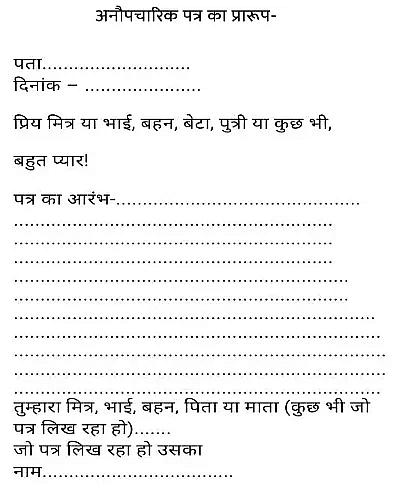 अनौपचारिक पत्र का प्रारूप-
पता............................
दिनांक – ......................
प्रिय मित्र या भाई, बहन, बेटा, पुत्री या कुछ भी,
बहुत प्यार!
पत्र का आरंभ-..............................................
............................................................
............................................................
............................................................
...............................................................
...............................................................
....................................................................
.....................................................................
......................................................................
......................................................................
.....................................................................
तुम्हारा मित्र, भाई, बहन, पिता या माता (कुछ भी जो
पत्र लिख रहा हो).......
जो पत्र लिख रहा हो उसका
नाम....................................